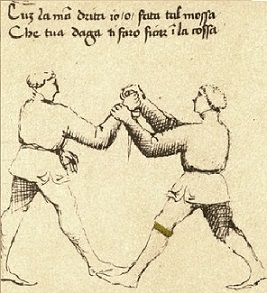 Cuz la mã drita io /o/ fata tal mossa
Che tua daga ti faro ficar ĩ la cossa